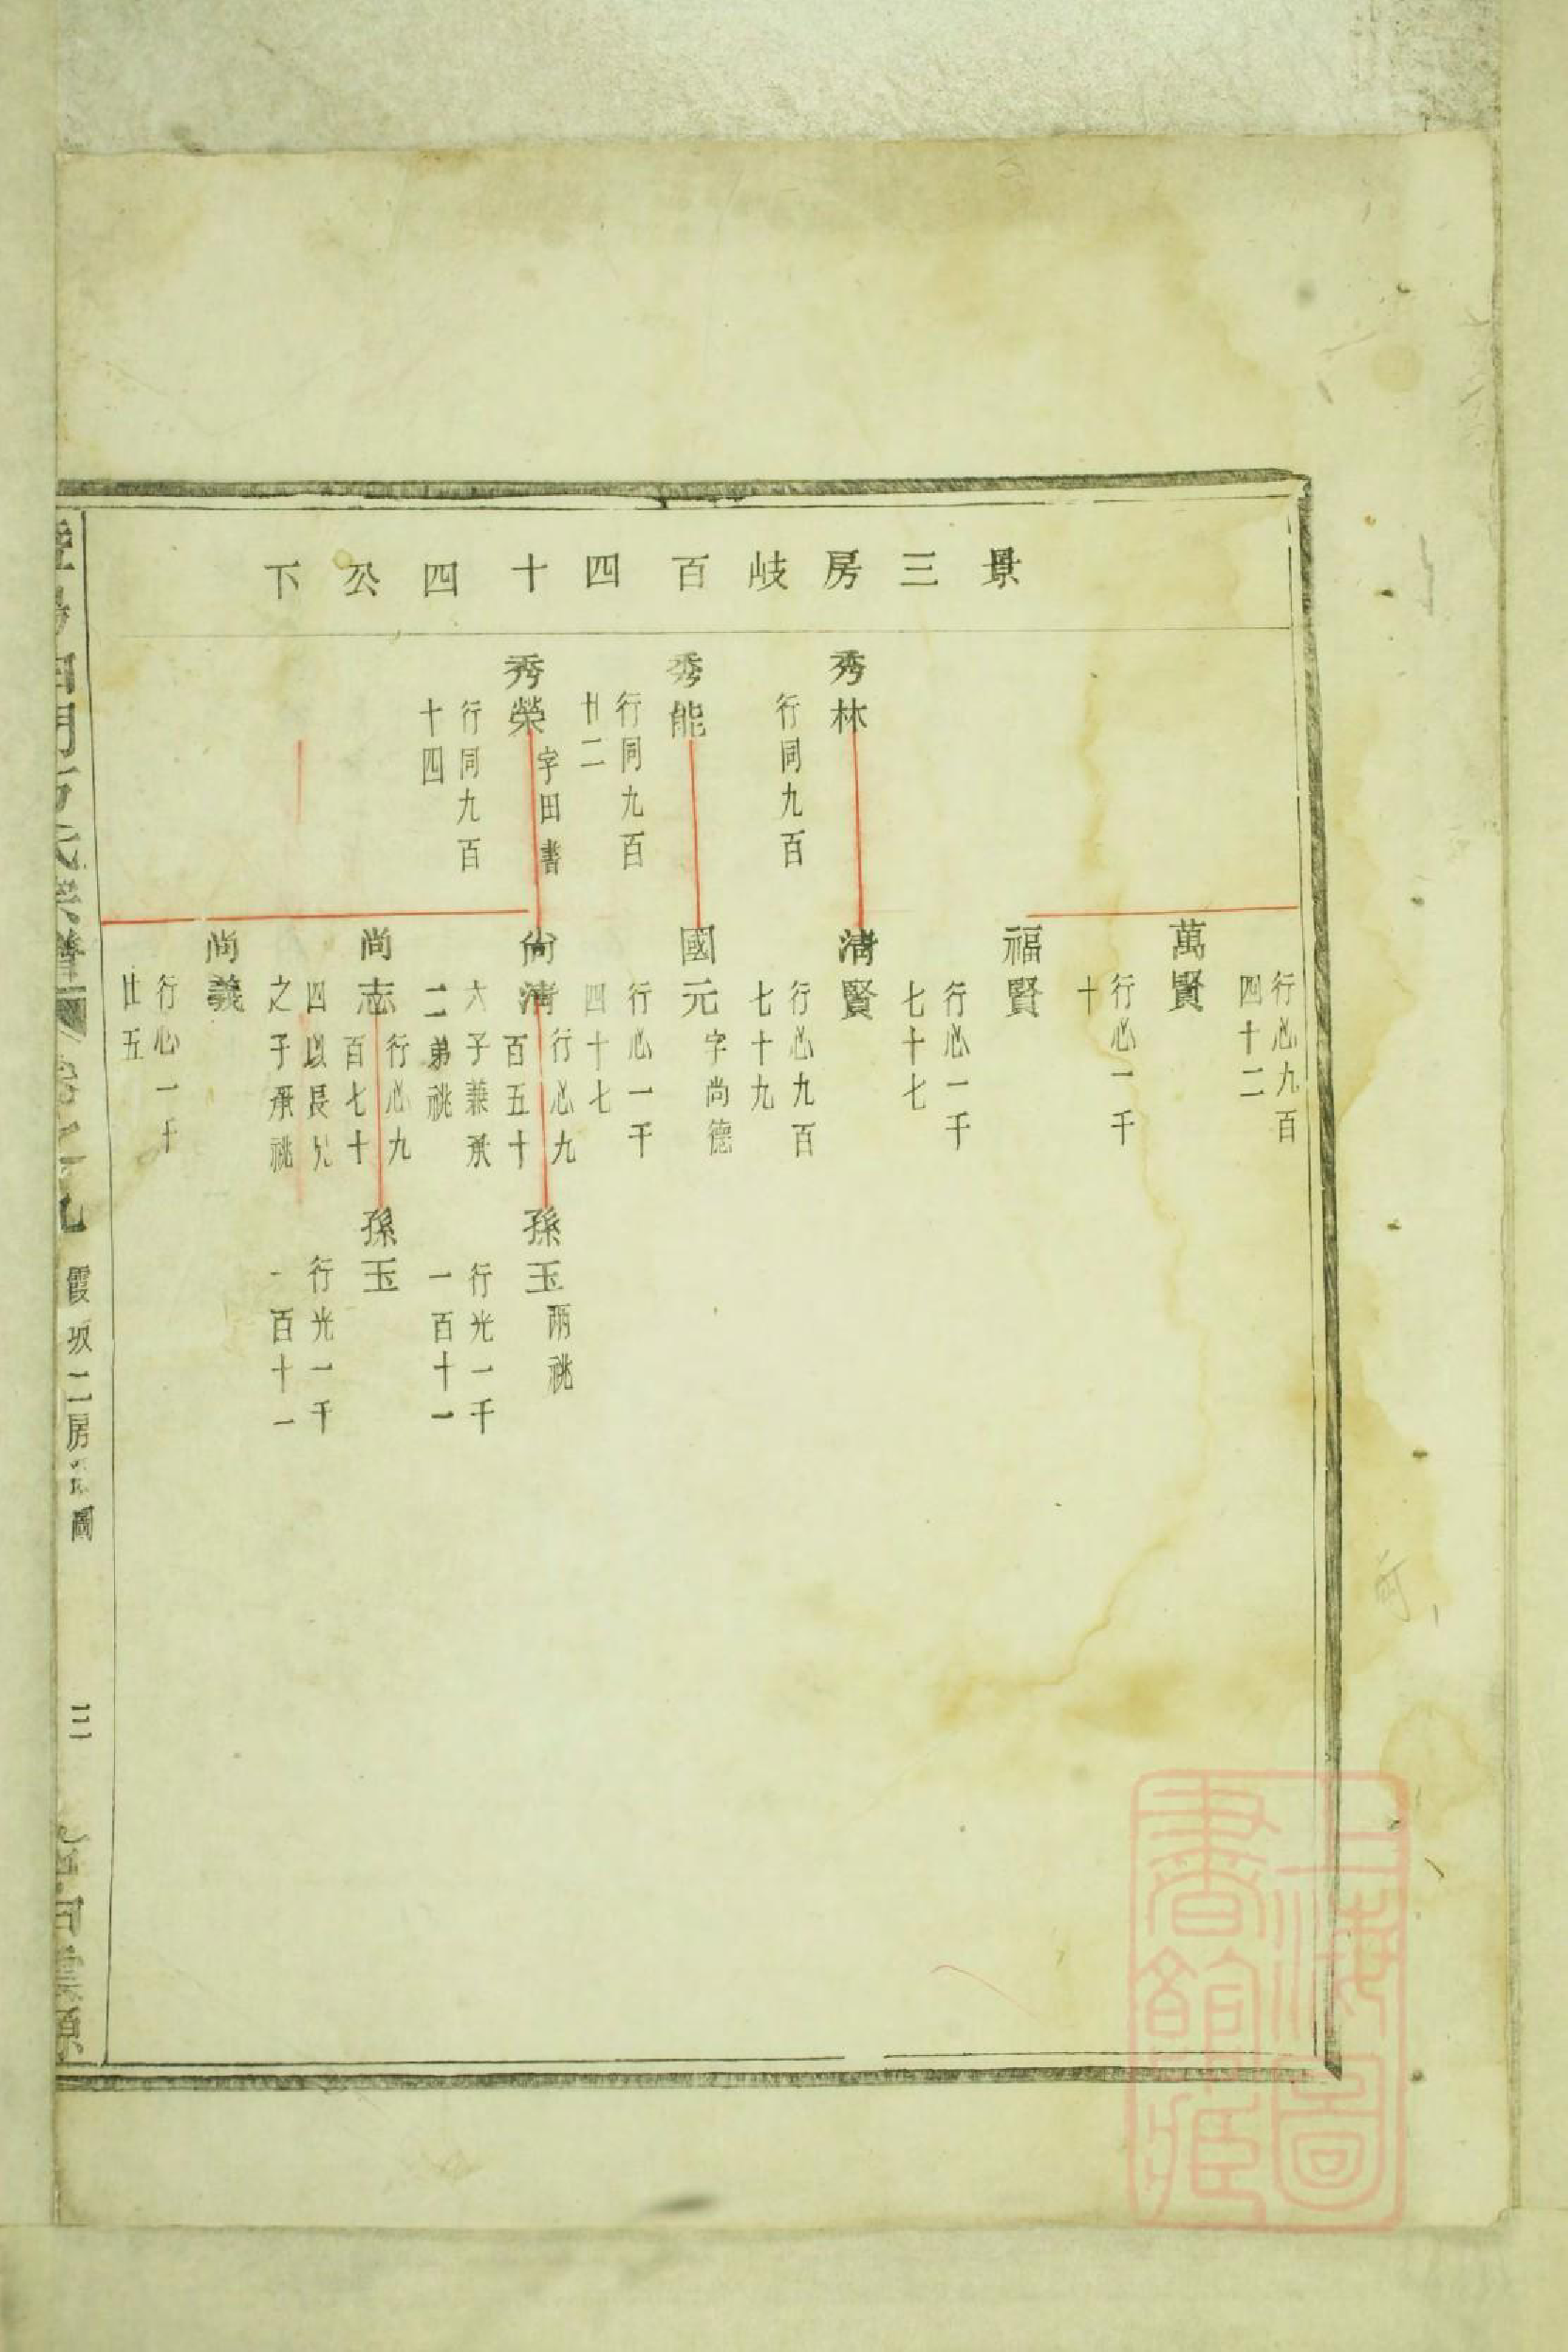 景三房岐百四十四公下
秀林
行同九百
秀能
行同九百
廿二
秀榮
字田書
行同九百
十四
行必九百
四十二
萬賢
行必一千
十
福賢
行必一千
七十七
清賢
行必九百
七十九
國元
字尚德
行必一千
四十七
尚清
行必九
百五十
六子兼承
二弟祧
尚志
行必九
百七十
四以長兄
之子承祧
尚義
行必一千
廿五
孫玉
兩祧
行光一千
一百十一
孫玉
行光一千
一百十一
霞坂二房
圖
三
上海圖
書館藏